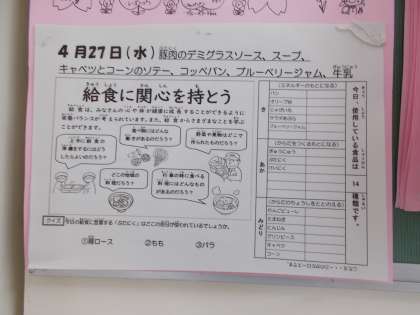 4月27日(水) 豚肉のデミグラスソース、スープ、
キャベツとコーンのソテー、コッペパン、ブルーベリージャム、牛乳
給食に関心を持とう
給食は、みなさんの心や体が健康に成長することができるように
栄養バランスが考えられています。また、給食からさまざまなことを学ぶ
ことができます。
上手に給食の
準備をするにはどう
したらよいのだろう?
食べ物にはどんな
働きがあるのだろう?
野菜や果物はどこで
作られたものだろう?
どこの地域の
料理だろう?
行事の時に食べる
料理にはどんなもの
があるのだろう?
クイズ 今日の給食に登場する「ぶたにく」はどこの部位が使われているでしょうか。
①肩ロース ②もも ③バラ
今日、使用している食品は 14 種類です。
き
(エネルギーのもとになる)
パン
オリーブ油
じゃがいも
ブルーベリージャム
あか
(からだをつくるもとになる)
ぎゅうにゅう
ぶたにく
みどり
(からだのちょうしをととのえる)
りんごピューレ
たまねぎ
にんじん
グリンピース
キャベツ
コーン